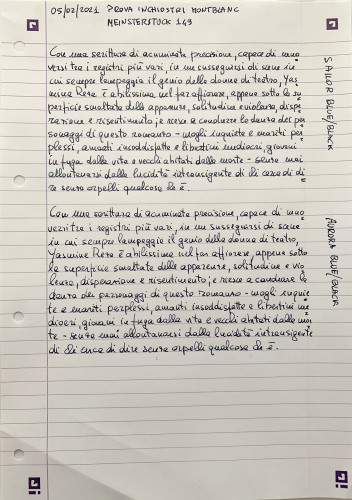 05/02/2021 PROVA INCHIOSTRI MONTBLANC
MEINSTERSTÜCK 149
Con una scrittura di acuminata precisione, capace di muo
versi tra i registri più vari, in un susseguirsi di scene in
cui sempre lampeggia il genio delle donne di teatro, Yas
mina Reza è abilissima nel far affiorare, appena sotto la su
perficie smaltata delle apparenze, solitudine e violenza, dispe
razione e risentimento; e riesce a condurre la danza dei per
sonaggi di questo romanzo - mogli inquiete e mariti per
plessi, amanti insoddisfatte e libertini mediocri, giovani
in fuga dalla vita e vecchi abitati dalla morte - senza mai
allontanarsi dalla lucidità intransigente di chi cerca di di
re senza orpelli qualcosa di è.
Con una scrittura di acuminata precisione, capace di muo
versi tra i registri più vari, in un susseguirsi di scene
in cui sempre lampeggia il genio delle donne di teatro,
Yasmina Reza è abilissima nel far affiorare, appena sotto
la superficie smaltata delle apparenze, solitudine e vio
lenza, disperazione e risentimento; e riesce a condurre la
danza dei personaggi di questo romanzo - mogli inquie
te e mariti perplessi, amanti insoddisfatte e libertini me
diocri, giovani in fuga dalla vita e vecchi abitati dalla mor
te - senza mai allontanarsi dalla lucidità intransigente
di chi cerca di dire senza orpelli qualcosa di è.
SAILOR BLUE/BLACK
AURORA BLUE/BLACK